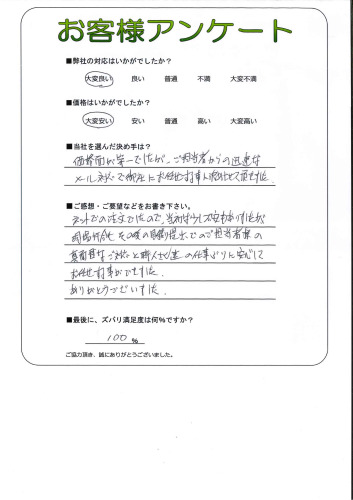 お客様アンケート
■弊社の対応はいかがでしたか?
大変良い 良い 普通 不満 大変不満
■価格はいかがでしたか?
大変安い 安い 普通 高い 大変高い
■当社を選んだ決め手は?
価格面が第一でしたが、ご担当者からの迅速な
メール対応で御社にお任せする事に決めさせて頂きました。
■ご感想・ご要望などをお書き下さい。
ネットでの注文でしたので、当初は少し不安もありましたが
その後の ご担当者様の
真面目なご対応と職人さん達の仕事ぶりに安心して
お任せする事ができました。
ありがとうございました。
■最後に、ズバリ満足度は何%ですか?
100 %
ご協力頂き、誠にありがとうございました。